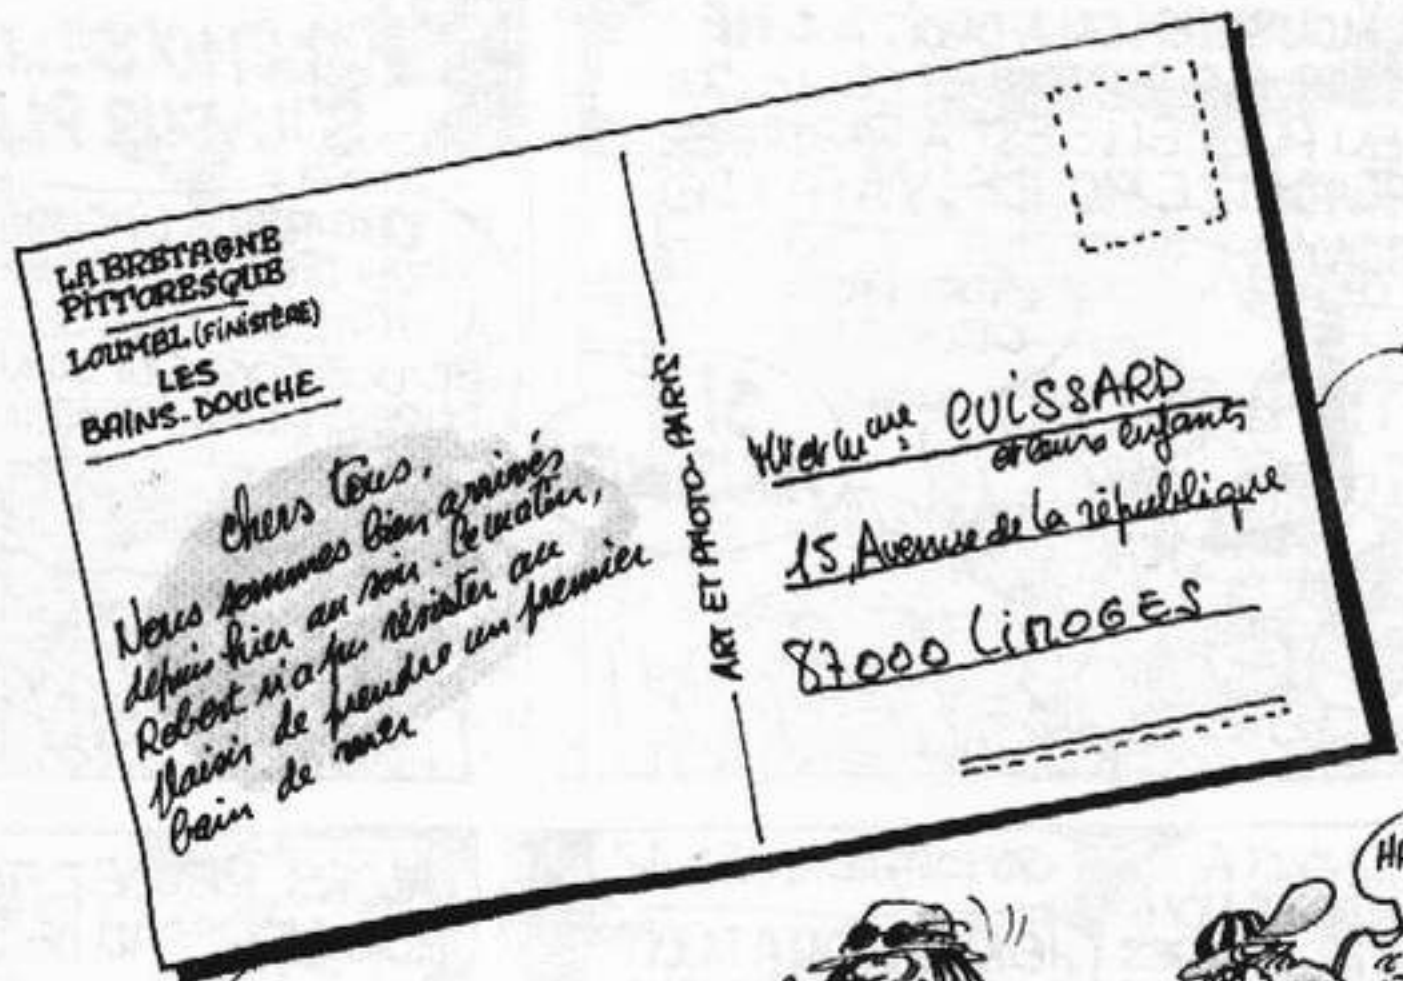 LA BRETAGNE
PITTORESQUE
LOUMEL (FINISTÈRE)
LES
BAINS-DOUCHE
chers tous.
Nous sommes bien arrivés
depuis hier au soir. Ce matin,
Robert n'a pu résister au
plaisir de prendre un premier
bain de mer
ART ET PHOTO-PARIS
Mr et Mme CUISSARD
et leurs enfants
15, Avenue de la république
87000 LIMOGES